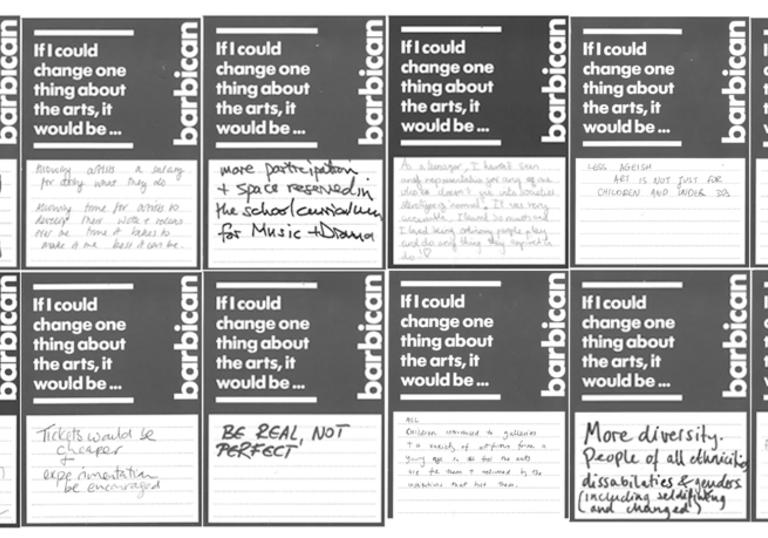 If I could
change one
thing about
the arts, it
would be ...
barbican
artists a salary
for doing what they do
Allowing time for artists to
develop their work +
the time it takes to
make it the best it can be.
If I could
change one
thing about
the arts, it
would be ...
barbican
more participation
+ space reserved in
the school curriculum
for Music + Drama
If I could
change one
thing about
the arts, it
would be ...
barbican
As a teenager, I haven't seen
much representation for any of one
who doesn't fit into societies
stereotype of 'normal'. It was very
I loved so much and
I loved seeing ordinary people play
and do any thing they aspired to
do!
If I could
change one
thing about
the arts, it
would be ...
barbican
LESS AGEISH
ART IS NOT JUST FOR
CHILDREN AND UNDER
barbican
If I could
change one
thing about
the arts, it
would be ...
barbican
Tickets would be
cheaper
+
experimentation
be encouraged
If I could
change one
thing about
the arts, it
would be ...
barbican
BE REAL, NOT
PERFECT
If I could
change one
thing about
the arts, it
would be ...
barbican
ALL
Children introduced to galleries
+ a variety of art forms from a
young age so to feel the arts
are for them + welcomed by the
institutions that host them.
If I could
change one
thing about
the arts, it
would be ...
barbican
More diversity.
People of all ethnicities
dissabilaties & genders
(including
and changed)
barbican